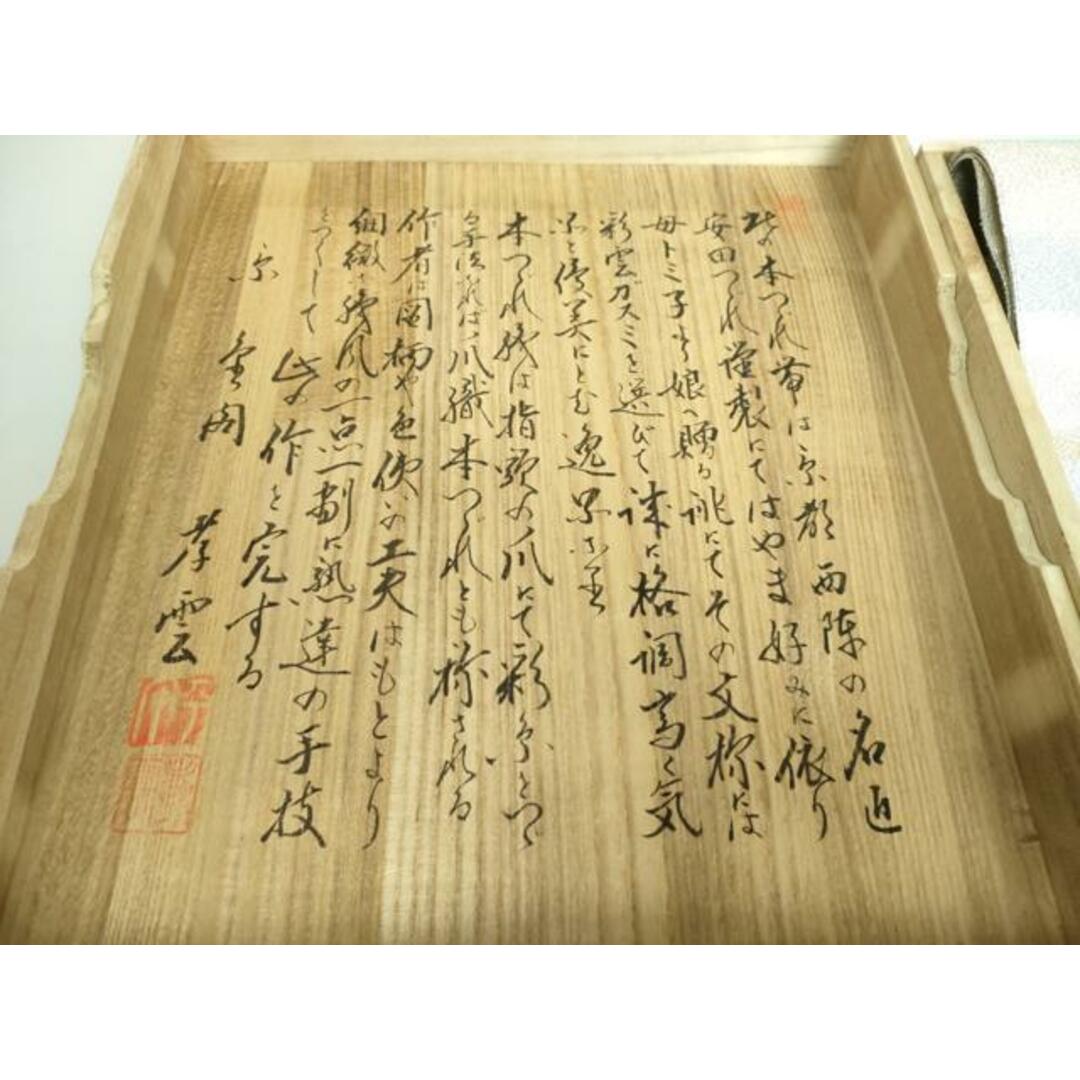 此の本つづれ帯は京都西陣の名匠
安田つづれ謹製にてはやま好みに依り
母トミ子より娘へ贈る誂にてその文様には
彩雲ガスミを選びて誠に格調高く気
品と優美にとむ逸品
本つづれ織は指頭の爪にて彩糸を
爪織本つづれとも称される
作者は図柄や色使いの工夫はもとより
細緻な織風の一点一劃に熟達の手技
をつくして此の作を完ずる
京
雲